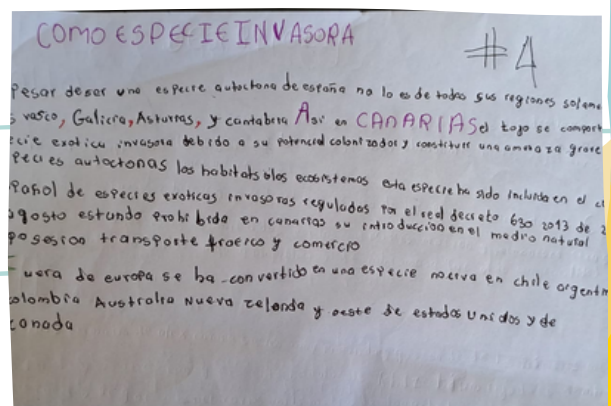 COMO ESPECIE INVASORA
#4
Pesar deser una especie autoctona de españa no lo es de todas sus regiones solame
vasco, Galicia, Asturias, y cantabria Asi en CANARIAS el tojo se comport
ecie exotica invasora debido a su potencial colonizador y constituir una amenaza grave
pecies autoctonas los habitats o los ecosistemas esta especie ha sido incluida en el c
pañol de especies exoticas invasoras reguladas por el real decreto 630 2013 de 2
agosto estando prohibida en canarias su introduccion en el medio natural
posesion transporte trafico y comercio
Fuera de europa se ha convertido en una especie nociva en chile argentin
olombia Australia Nueva zelanda y oeste de estados unidos y de
canada